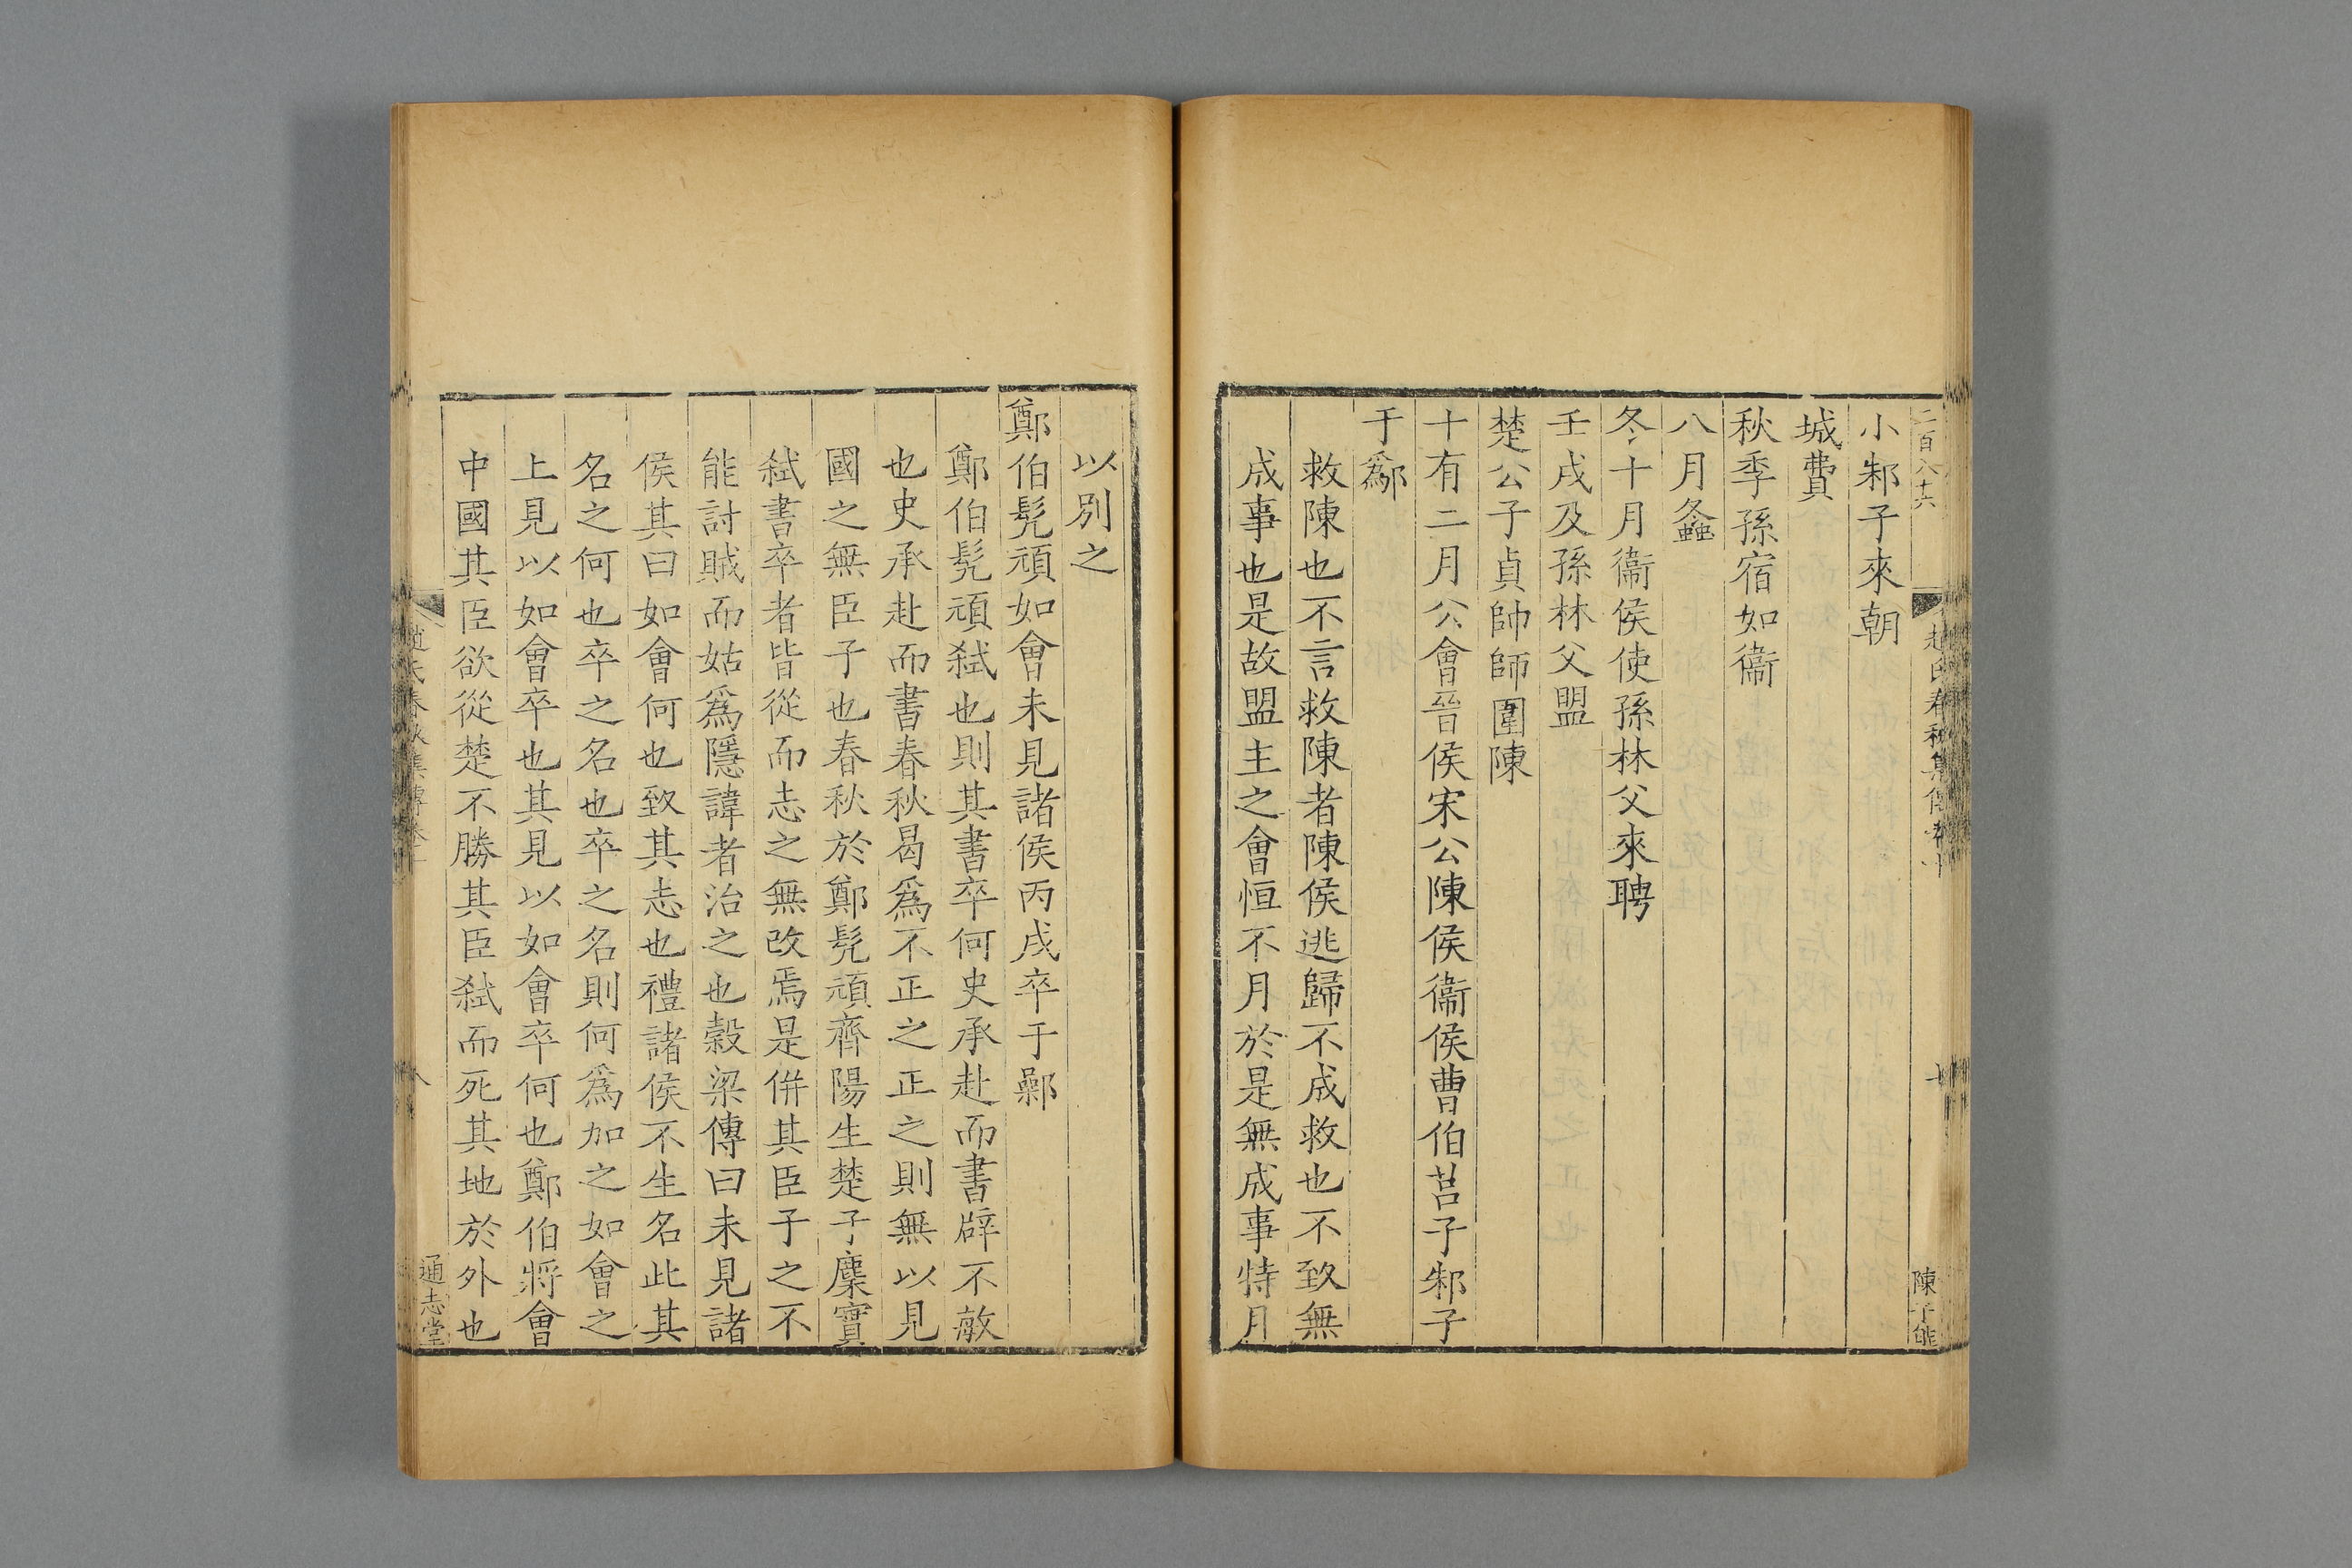 二百八十六
趙氏春秋集傳卷十
陳子能
小邾子來朝
城費
秋季孫宿如衞
八月螽
冬十月衞侯使孫林父來聘
壬戌及孫林父盟
楚公子貞帥師圍陳
十有二月公會晉侯宋公陳侯衞侯曹伯莒子邾子
于鄬
救陳也不言救陳者陳侯逃歸不成救也不致無
成事也是故盟主之會恒不月於是無成事特月
以別之
鄭伯髡頑如會未見諸侯丙戌卒于鄵
鄭伯髡頑弑也則其書卒何史承赴而書辟不敏
也史承赴而書春秋曷爲不正之正之則無以見
國之無臣子也春秋於鄭髡頑齊陽生楚子麇實
弑書卒者皆從而志之無改焉是併其臣子之不
能討賊而姑爲隱諱者治之也穀梁傳曰未見諸
侯其曰如會何也致其志也禮諸侯不生名此其
名之何也卒之名也卒之名則何爲加之如會之
上見以如會卒也其見以如會卒何也鄭伯將會
中國其臣欲從楚不勝其臣弑而死其地於外也
趙氏春秋集傳卷十
八
通志堂